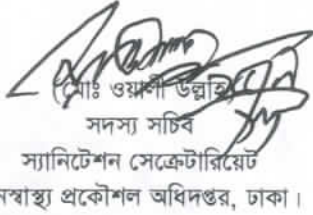 (মোঃ ওয়ালী উল্লাহ)
সদস্য সচিব
স্যানিটেশন সেক্রেটারিয়েট
নস্বাস্থ্য প্রকৌশল অধিদপ্তর, ঢাকা।